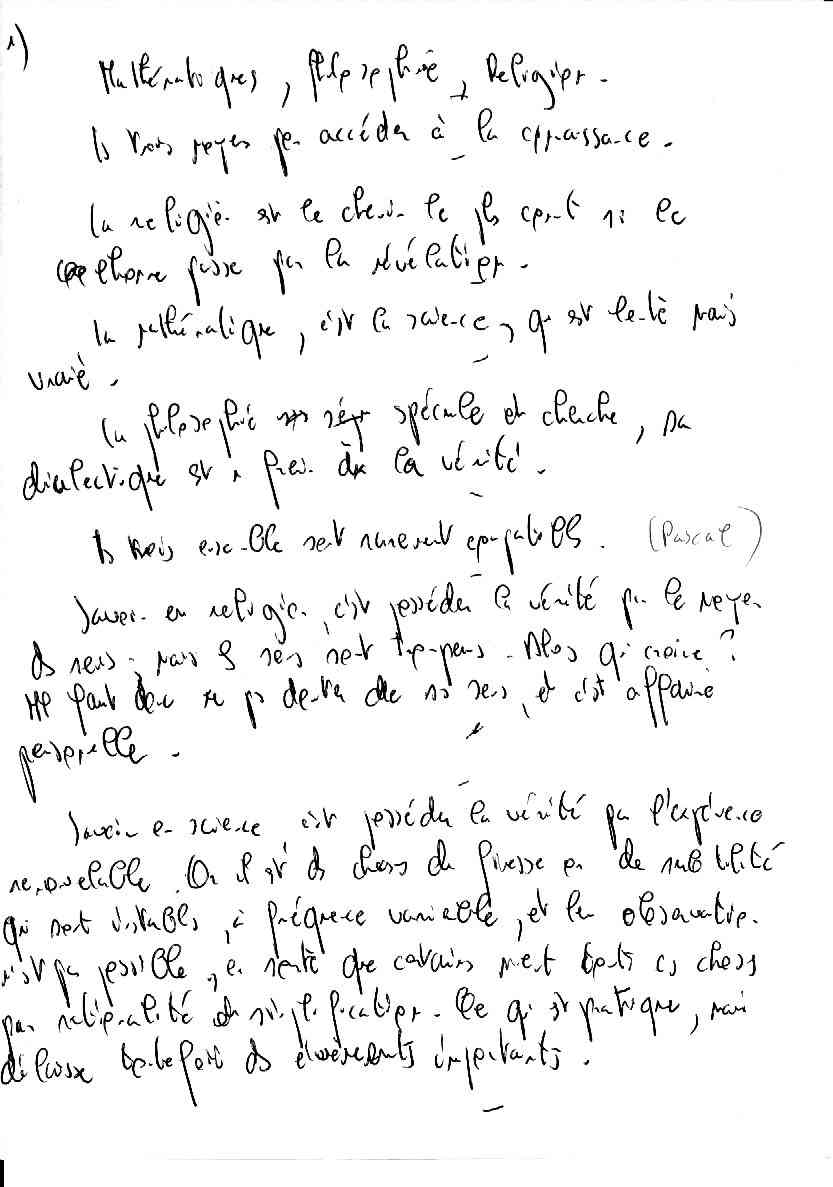 1)
Mathématiques, philosophie, Religion.
Les trois moyens pour accéder à la connaissance.
La religion est le chemin le plus court si le
l'homme passe par la révélation.
La mathématique, c'est la science, qui est lente mais
vraie.
La philosophie spécule et cherche, sa
dialectique est un frein de la vérité.
Les trois ensemble sont rarement compatibles. (Pascal)
Savoir en religion, c'est posséder la vérité par le moyen
des sens, mais les sens sont trompeurs. Alors qui croire ?
Il faut donc ne pas douter de nos sens, et c'est affaire
personnelle.
Savoir en science c'est posséder la vérité par l'expérience
renouvelable. Or il est des choses de finesse ou de subtilité
qui sont instables, à fréquence variable, et leur observation
n'est pas possible, en sorte que certains nient toutes ces choses
par rationalité de simplification. Ce qui est pratique, mais
délaisse toutefois des événements importants.